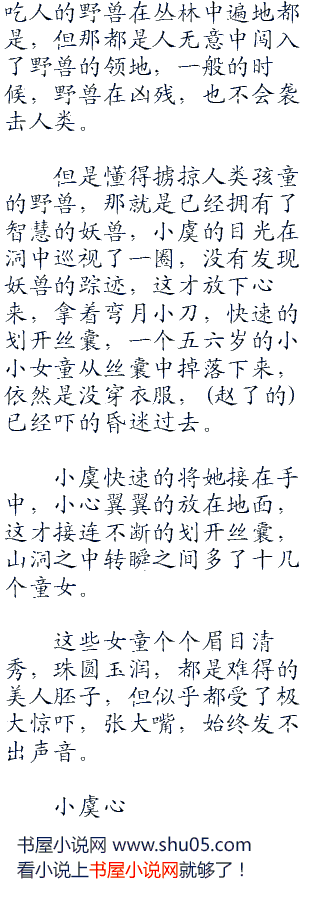 吃人的野兽在丛林中遍地都
是，但那都是人无意中闯入
了野兽的领地，一般的时
候，野兽在凶残，也不会袭
击人类。
但是懂得掳掠人类孩童
的野兽，那就是已经拥有了
智慧的妖兽，小虞的目光在
洞中巡视了一圈，没有发现
妖兽的踪迹，这才放下心
来，拿着弯月小刀，快速的
划开丝囊，一个五六岁的小
小女童从丝囊中掉落下来，
依然是没穿衣服，(赵了的)
已经吓的昏迷过去。
小虞快速的将她接在手
中，小心翼翼的放在地面，
这才接连不断的划开丝囊，
山洞之中转瞬之间多了十几
个童女。
这些女童个个眉目清
秀，珠圆玉润，都是难得的
美人胚子，但似乎都受了极
大惊吓，张大嘴，始终发不
出声音。
小虞心
书屋小说网 www.shu05.com
看小说上书屋小说网就够了！